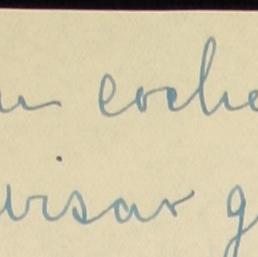 en coche
avisar g